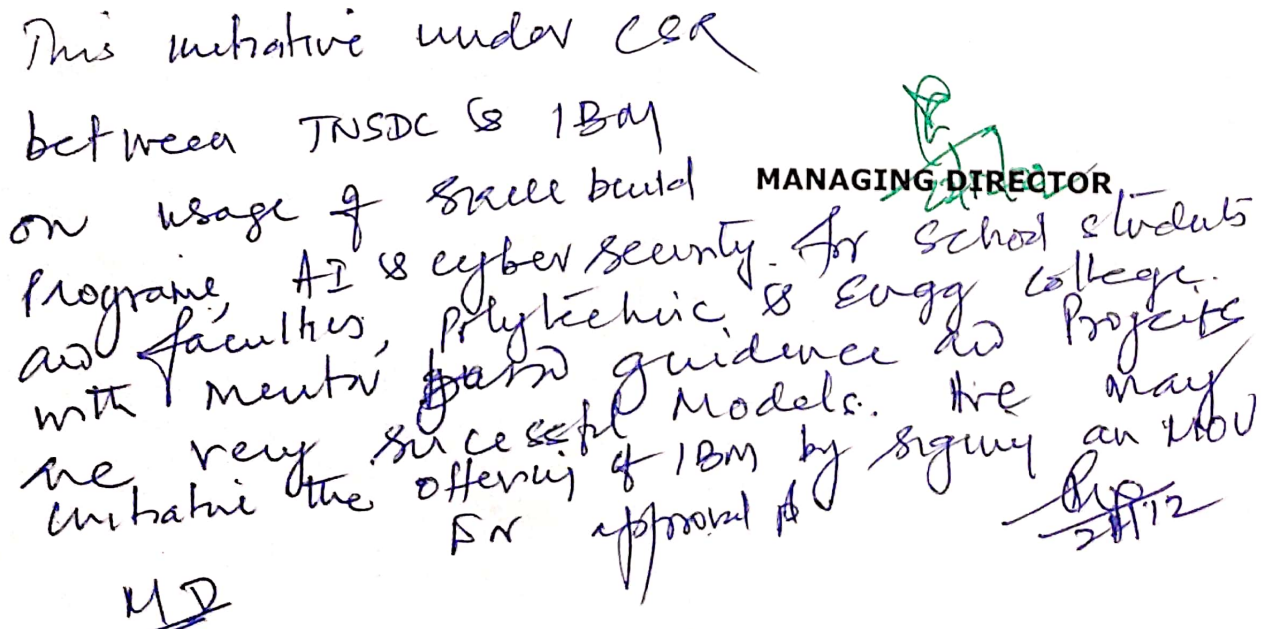 This initiative under CSR
between TNSDC & IBM
on usage of skill build
MANAGING DIRECTOR
Programe, AI & cyber security for school students
and faculties, Polytechnic & Engg college.
with mentor guidence and Projects
are very sucessful Models. We may
initiative the offering of IBM by signing an MOU
For approval
21/12
MD